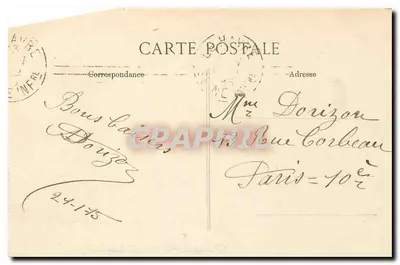 CARTE POSTALE
Correspondance
Adresse
Bons baisers
Dorizon
24-1-15
Mme Dorizon
13 Rue Corbeau
Paris = 10e
CPARAMA